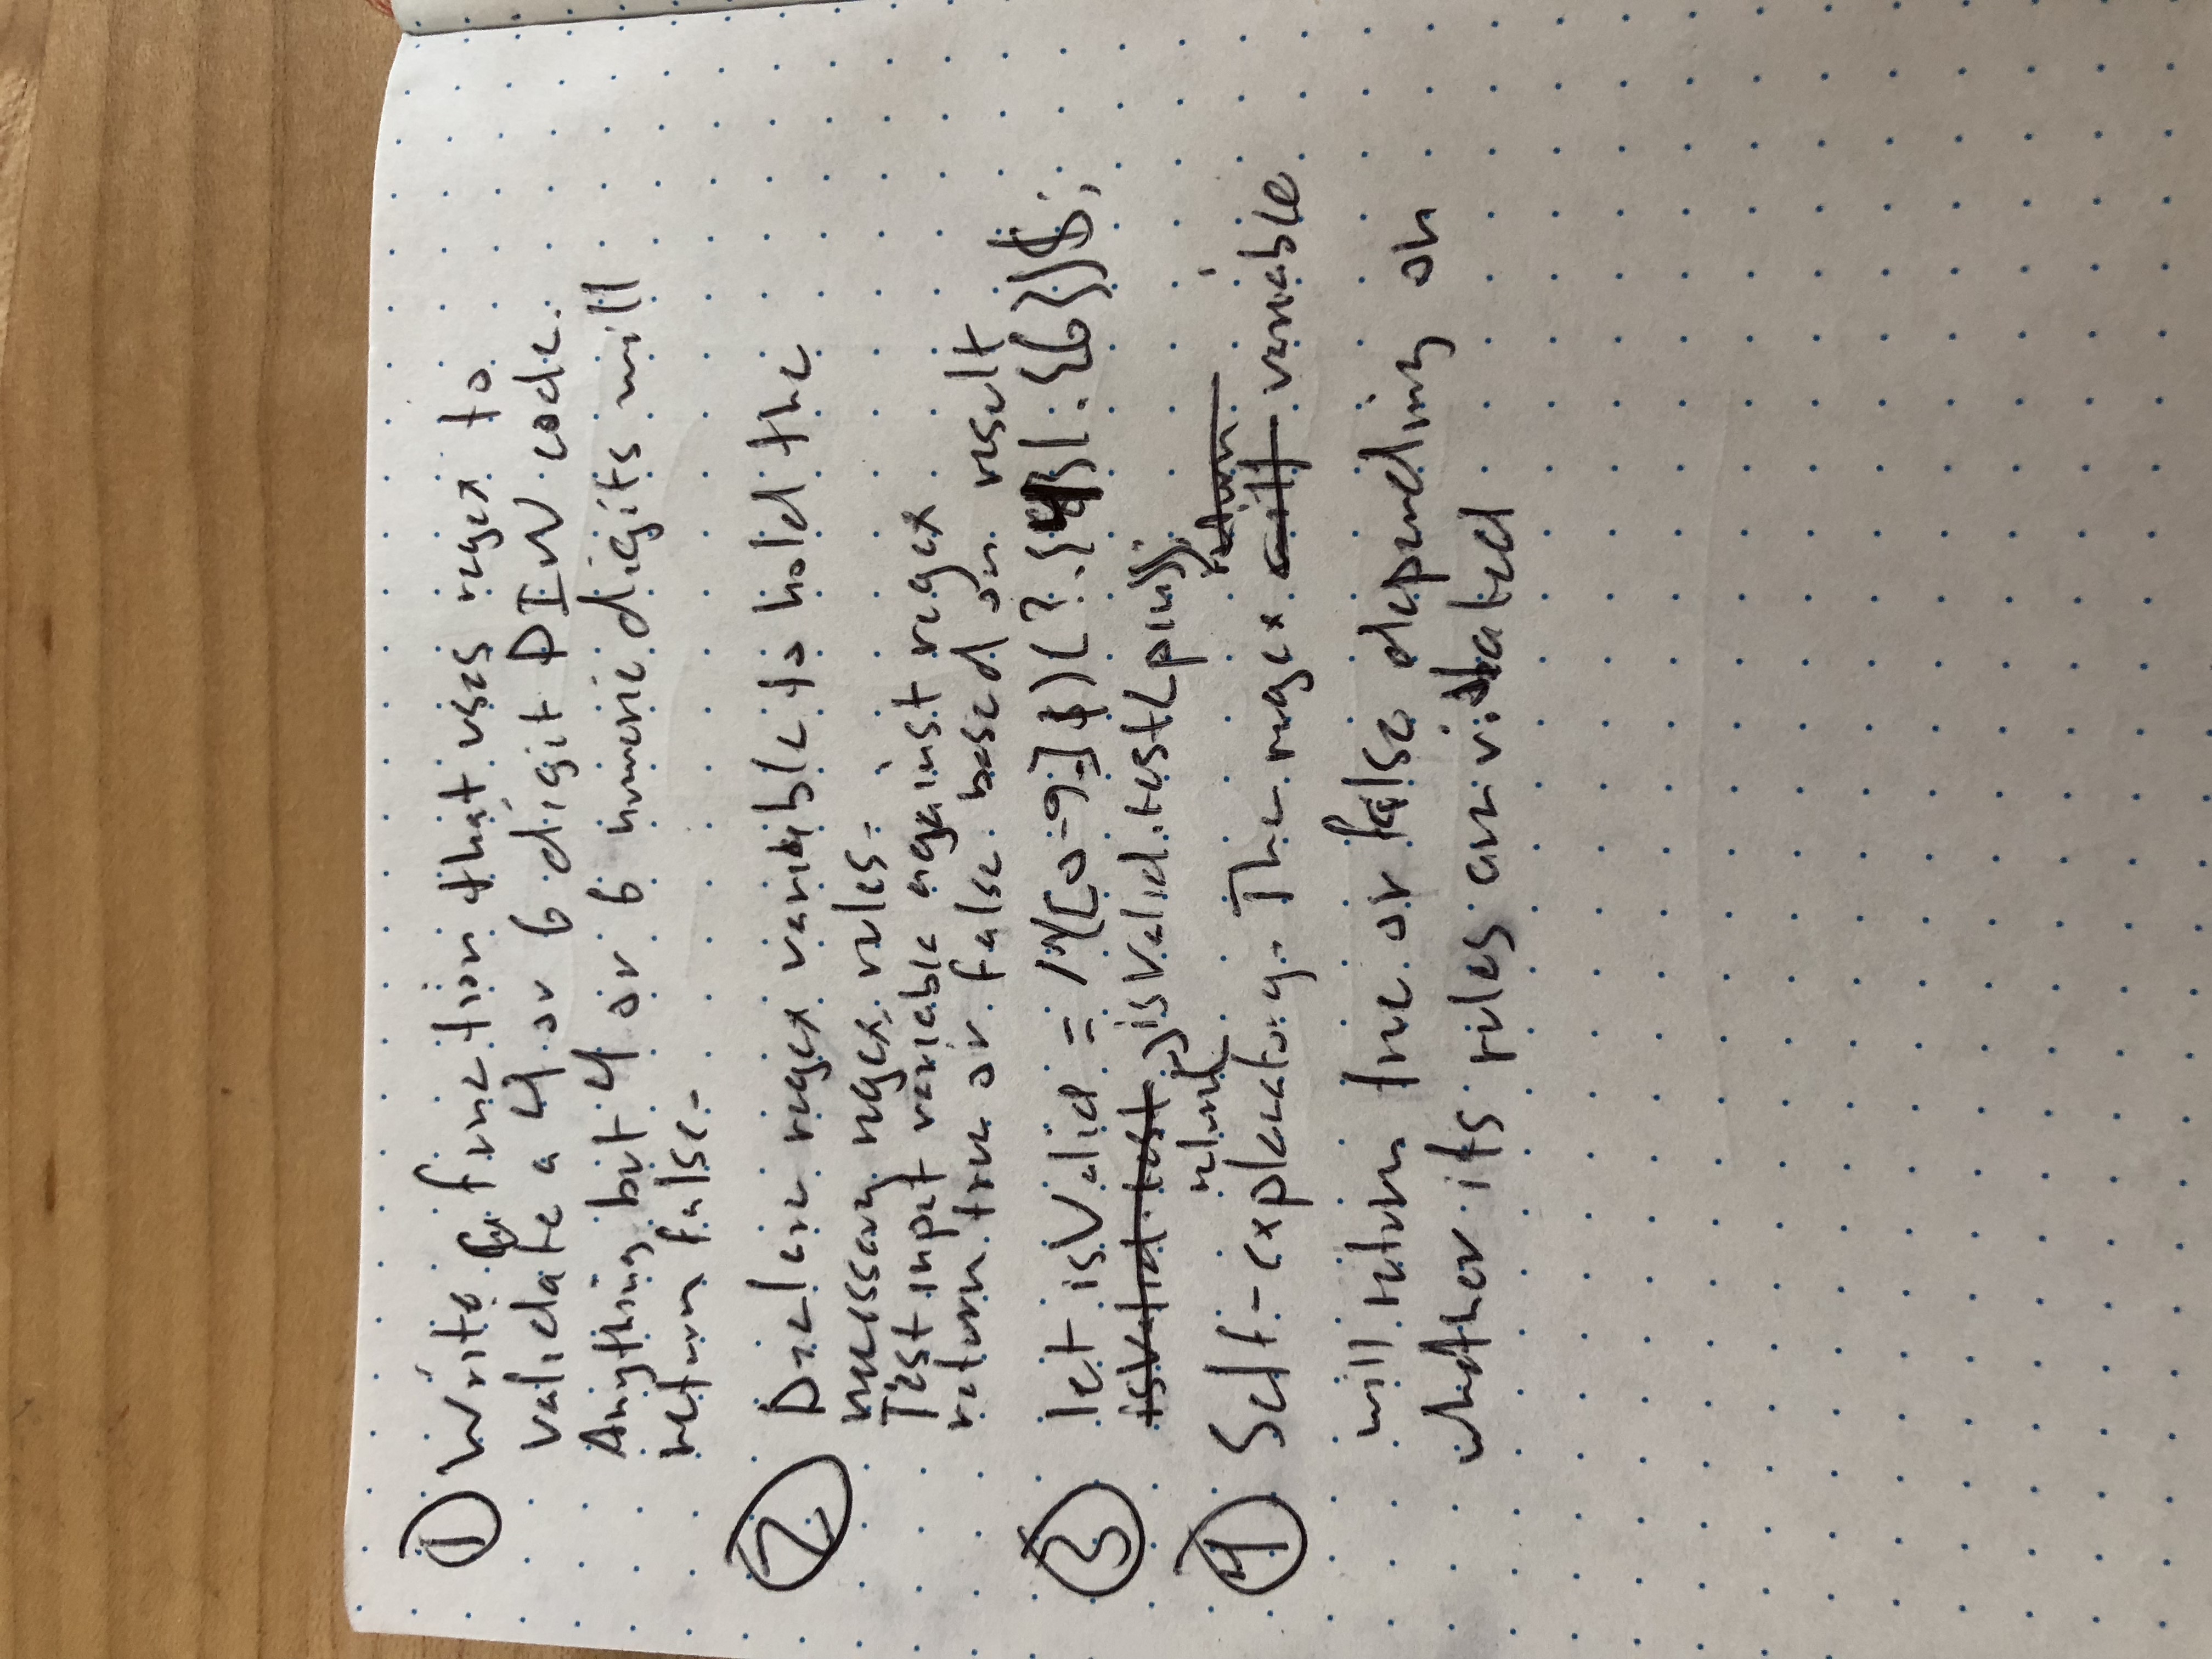 ① Write a function that uses regex to
validate a 4 or 6 digit PIN code.
Anything but 4 or 6 numeric digits will
return false.
② Declare regex variable to hold the
necessary regex rules.
Test input variable against regex
return true or false based on result
③ let isValid = /^([0-9]$)(?.{4}|.{6})$;
isValid.test isValid.test(pin));
return(
④ Self-explanatory. The regex will variable
return
will return true or false depending on
whether its rules are violated